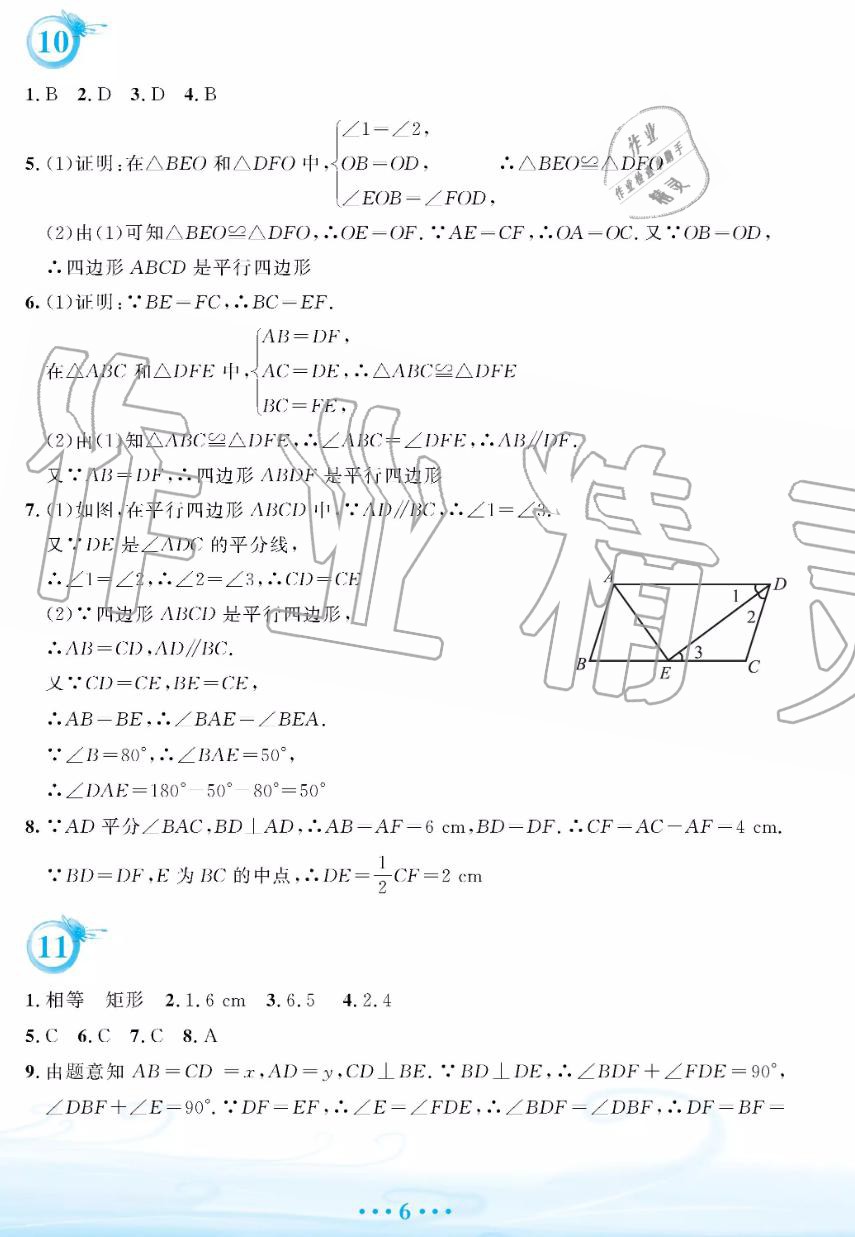 10
1. B 2. D 3. D 4. B
5. (1)证明:在△BEO 和△DFO 中,{∠1=∠2,
OB=OD, ∴△BEO≌△DFO
∠EOB=∠FOD,
(2)由(1)可知△BEO≌△DFO,∴OE=OF.∵AE=CF,∴OA=OC.又∵OB=OD,
∴四边形 ABCD 是平行四边形
6. (1)证明:∵BE=FC,∴BC=EF.
在△ABC 和△DFE 中,{AB=DF,
AC=DE,∴△ABC≌△DFE
BC=FE,
(2)由(1)知△ABC≌△DFE,∴∠ABC=∠DFE,∴AB∥DF.
又∵AB=DF,∴四边形 ABDF 是平行四边形
7. (1)如图,在平行四边形 ABCD 中,∵AD∥BC,∴∠1=∠3.
又∵DE 是∠ADC 的平分线,
∴∠1=∠2,∴∠2=∠3,∴CD=CE
(2)∵四边形 ABCD 是平行四边形,
∴AB=CD,AD∥BC.
又∵CD=CE,BE=CE,
∴AB=BE,∴∠BAE=∠BEA.
∵∠B=80°,∴∠BAE=50°,
∴∠DAE=180°-50°-80°=50°
A D 1 2 B E 3 C
8. ∵AD 平分∠BAC,BD⊥AD,∴AB=AF=6 cm,BD=DF.∴CF=AC-AF=4 cm.
∵BD=DF,E 为 BC 的中点,∴DE=1/2CF=2 cm
11
1. 相等 矩形 2. 1.6 cm 3. 6.5 4. 2.4
5. C 6. C 7. C 8. A
9. 由题意知 AB=CD =x,AD=y,CD⊥BE.∵BD⊥DE,∴∠BDF+∠FDE=90°,
∠DBF+∠E=90°.∵DF=EF,∴∠E=∠FDE,∴∠BDF=∠DBF,∴DF=BF=
···6···
作业
作业检查小助手
精灵
作业精灵